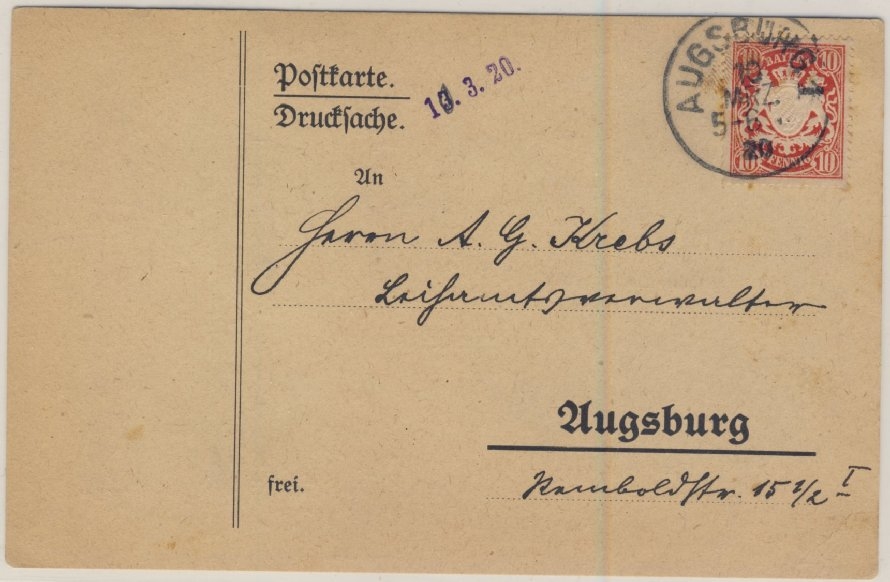 Postkarte.
Drucksache.
3. 20.
AUGSBURG 1
13
MRZ.
5-6
20
10 BAYERN 10
10 PFENNIG 10
An
Herrn A. G. Krebs
Leihamtsverwalter
Augsburg
frei.
Remboldstr. 15 1/2 I